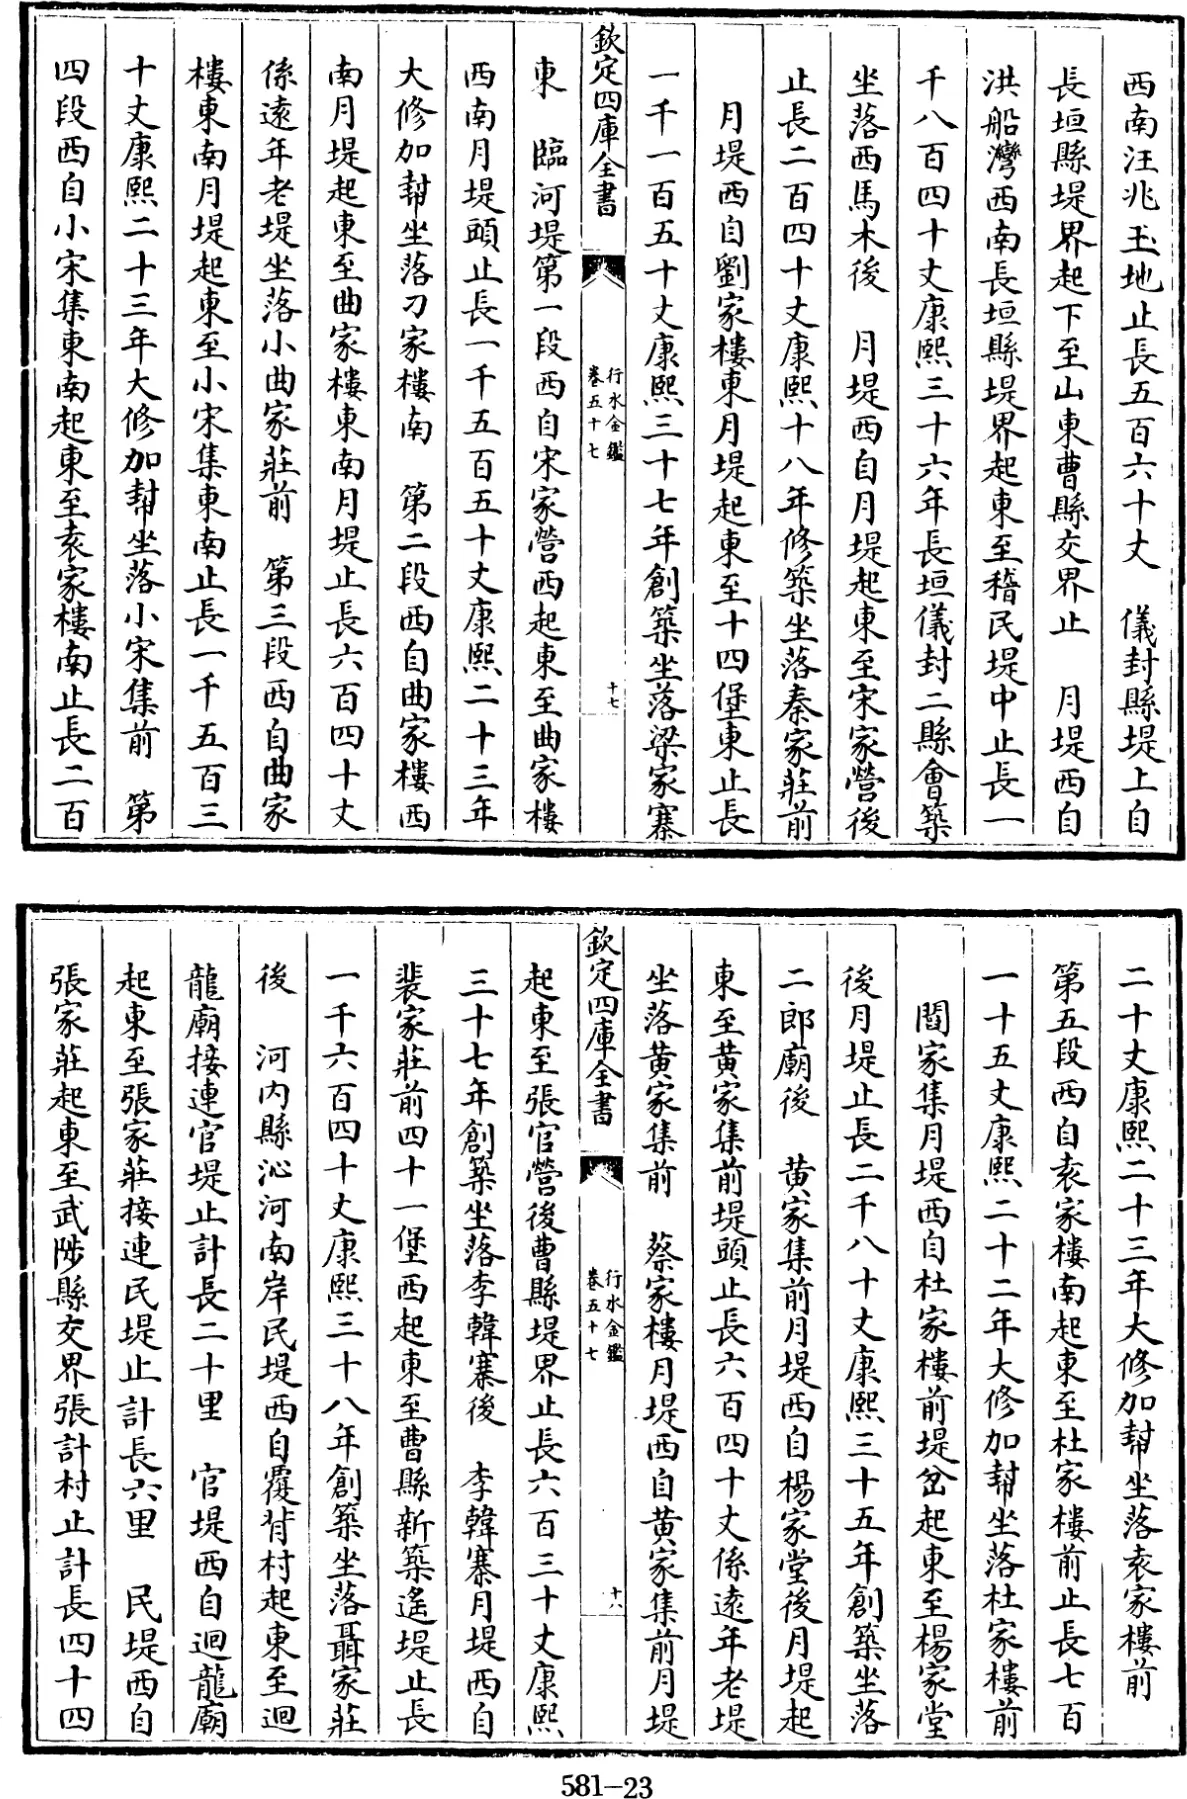 西南汪兆玉地止長五百六十丈　儀封縣堤上自
長垣縣堤界起下至山東曹縣交界止　月堤西自
洪船灣西南長垣縣堤界起東至稽民堤中止長一
千八百四十丈康熙三十六年長垣儀封二縣會築
坐落西馬木後　月堤西自月堤起東至宋家營後
止長二百四十丈康熙十八年修築坐落秦家莊前
月堤西自劉家樓東月堤起東至十四堡東止長
一千一百五十丈康熙三十七年創築坐落梁家寨
欽定四庫全書　行水金鑑　卷五十七　十七
東　臨河堤第一段西自宋家營西起東至曲家樓
西南月堤頭止長一千五百五十丈康熙二十三年
大修加幇坐落刁家樓南　第二段西自曲家樓西
南月堤起東至曲家樓東南月堤止長六百四十丈
係遠年老堤坐落小曲家莊前　第三段西自曲家
樓東南月堤起東至小宋集東南止長一千五百三
十丈康熙二十三年大修加幇坐落小宋集前　第
四段西自小宋集東南起東至袁家樓南止長二百
二十丈康熙二十三年大修加幇坐落袁家樓前
第五段西自袁家樓南起東至杜家樓前止長七百
一十五丈康熙二十二年大修加幇坐落杜家樓前
閻家集月堤西自杜家樓前堤岔起東至楊家堂
後月堤止長二千八十丈康熙三十五年創築坐落
二郎廟後　黄家集前月堤西自楊家堂後月堤起
東至黄家集前堤頭止長六百四十丈係遠年老堤
坐落黄家集前　蔡家樓月堤西自黄家集前月堤
欽定四庫全書　行水金鑑　卷五十七　十八
起東至張官營後曹縣堤界止長六百三十丈康熙
三十七年創築坐落李韓寨後　李韓寨月堤西自
裴家莊前四十一堡西起東至曹縣新築遙堤止長
一千六百四十丈康熙三十八年創築坐落聶家莊
後　河内縣沁河南岸民堤西自覆背村起東至迴
龍廟接連官堤止計長二十里　官堤西自迴龍廟
起東至張家莊接連民堤止計長六里　民堤西自
張家莊起東至武陟縣交界張計村止計長四十四
581-23